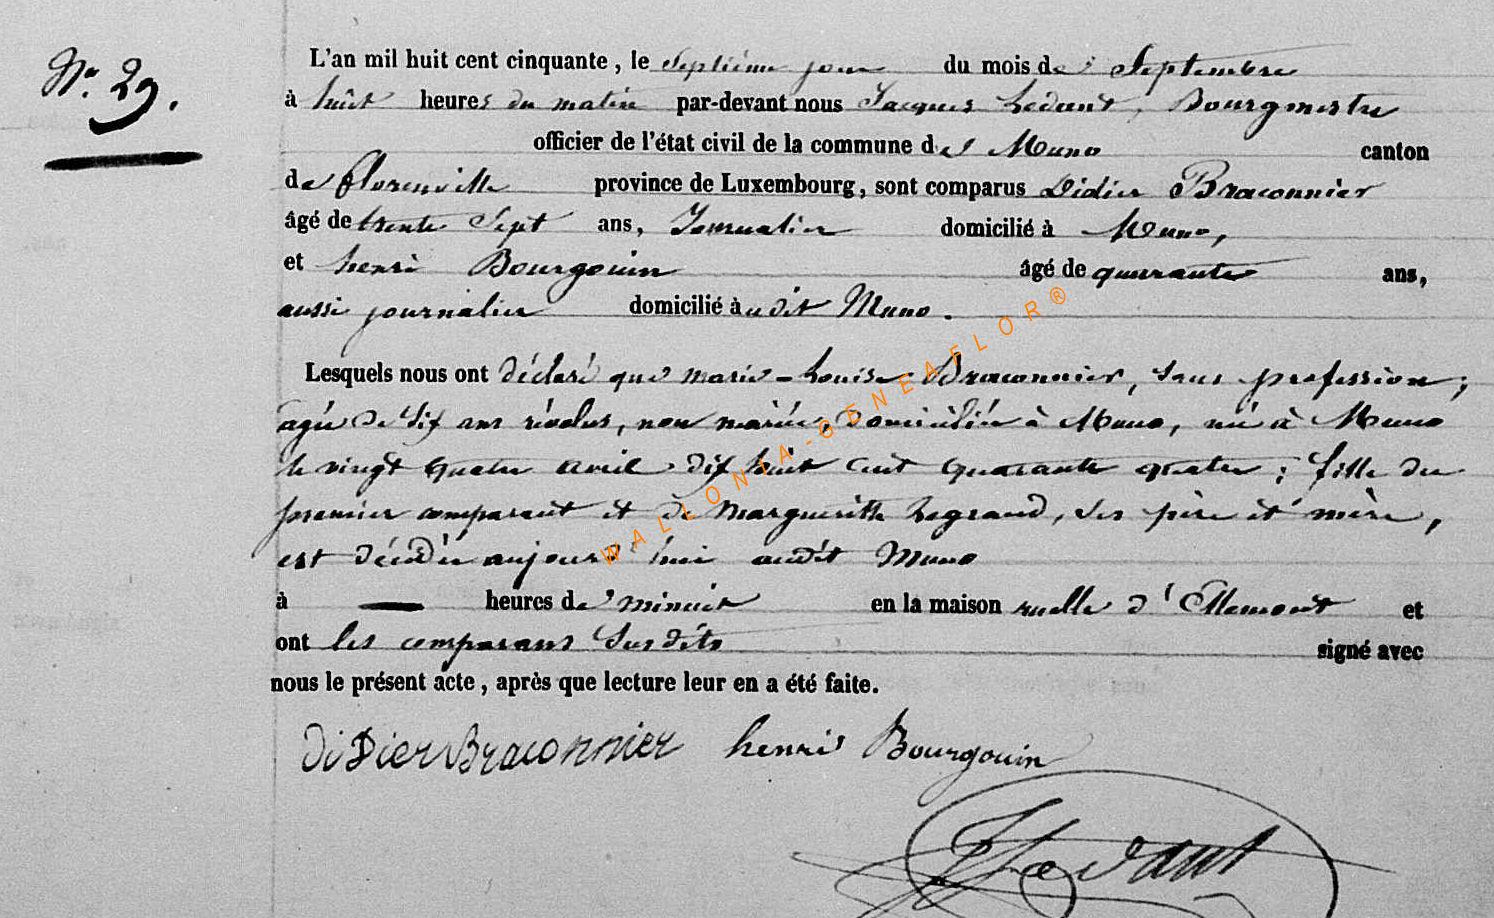 N° 29.
L'an mil huit cent cinquante, le Septième jour du mois de Septembre
à huit heures du matin par-devant nous Jacques Lédant, Bourgmestre
officier de l'état civil de la commune de Muno canton
de florenville province de Luxembourg, sont comparus Didier Braconnier
âgé de trente Sept ans, Journalier domicilié à Muno,
et henri Bourgouin âgé de quarante ans,
aussi journalier domicilié à udit Muno.
Lesquels nous ont déclaré que marie-Louise Braconnier, sans profession,
agée de Six ans révolus, non mariée, domiciliée à Muno, née à Muno
le vingt quatre avril dix huit cent quarante quatre ; fille du
premier comparant et de Marguerithe Legrand, ses père et mère,
est décédée aujourd'hui audit Muno
à — heures de minuit en la maison ruelle d'Ellemont et
ont les comparans Susdits signé avec
nous le présent acte, après que lecture leur en a été faite.
Didier Braconnier henri Bourgouin
J Lédant
WALLONIA-GENEAFLOR®